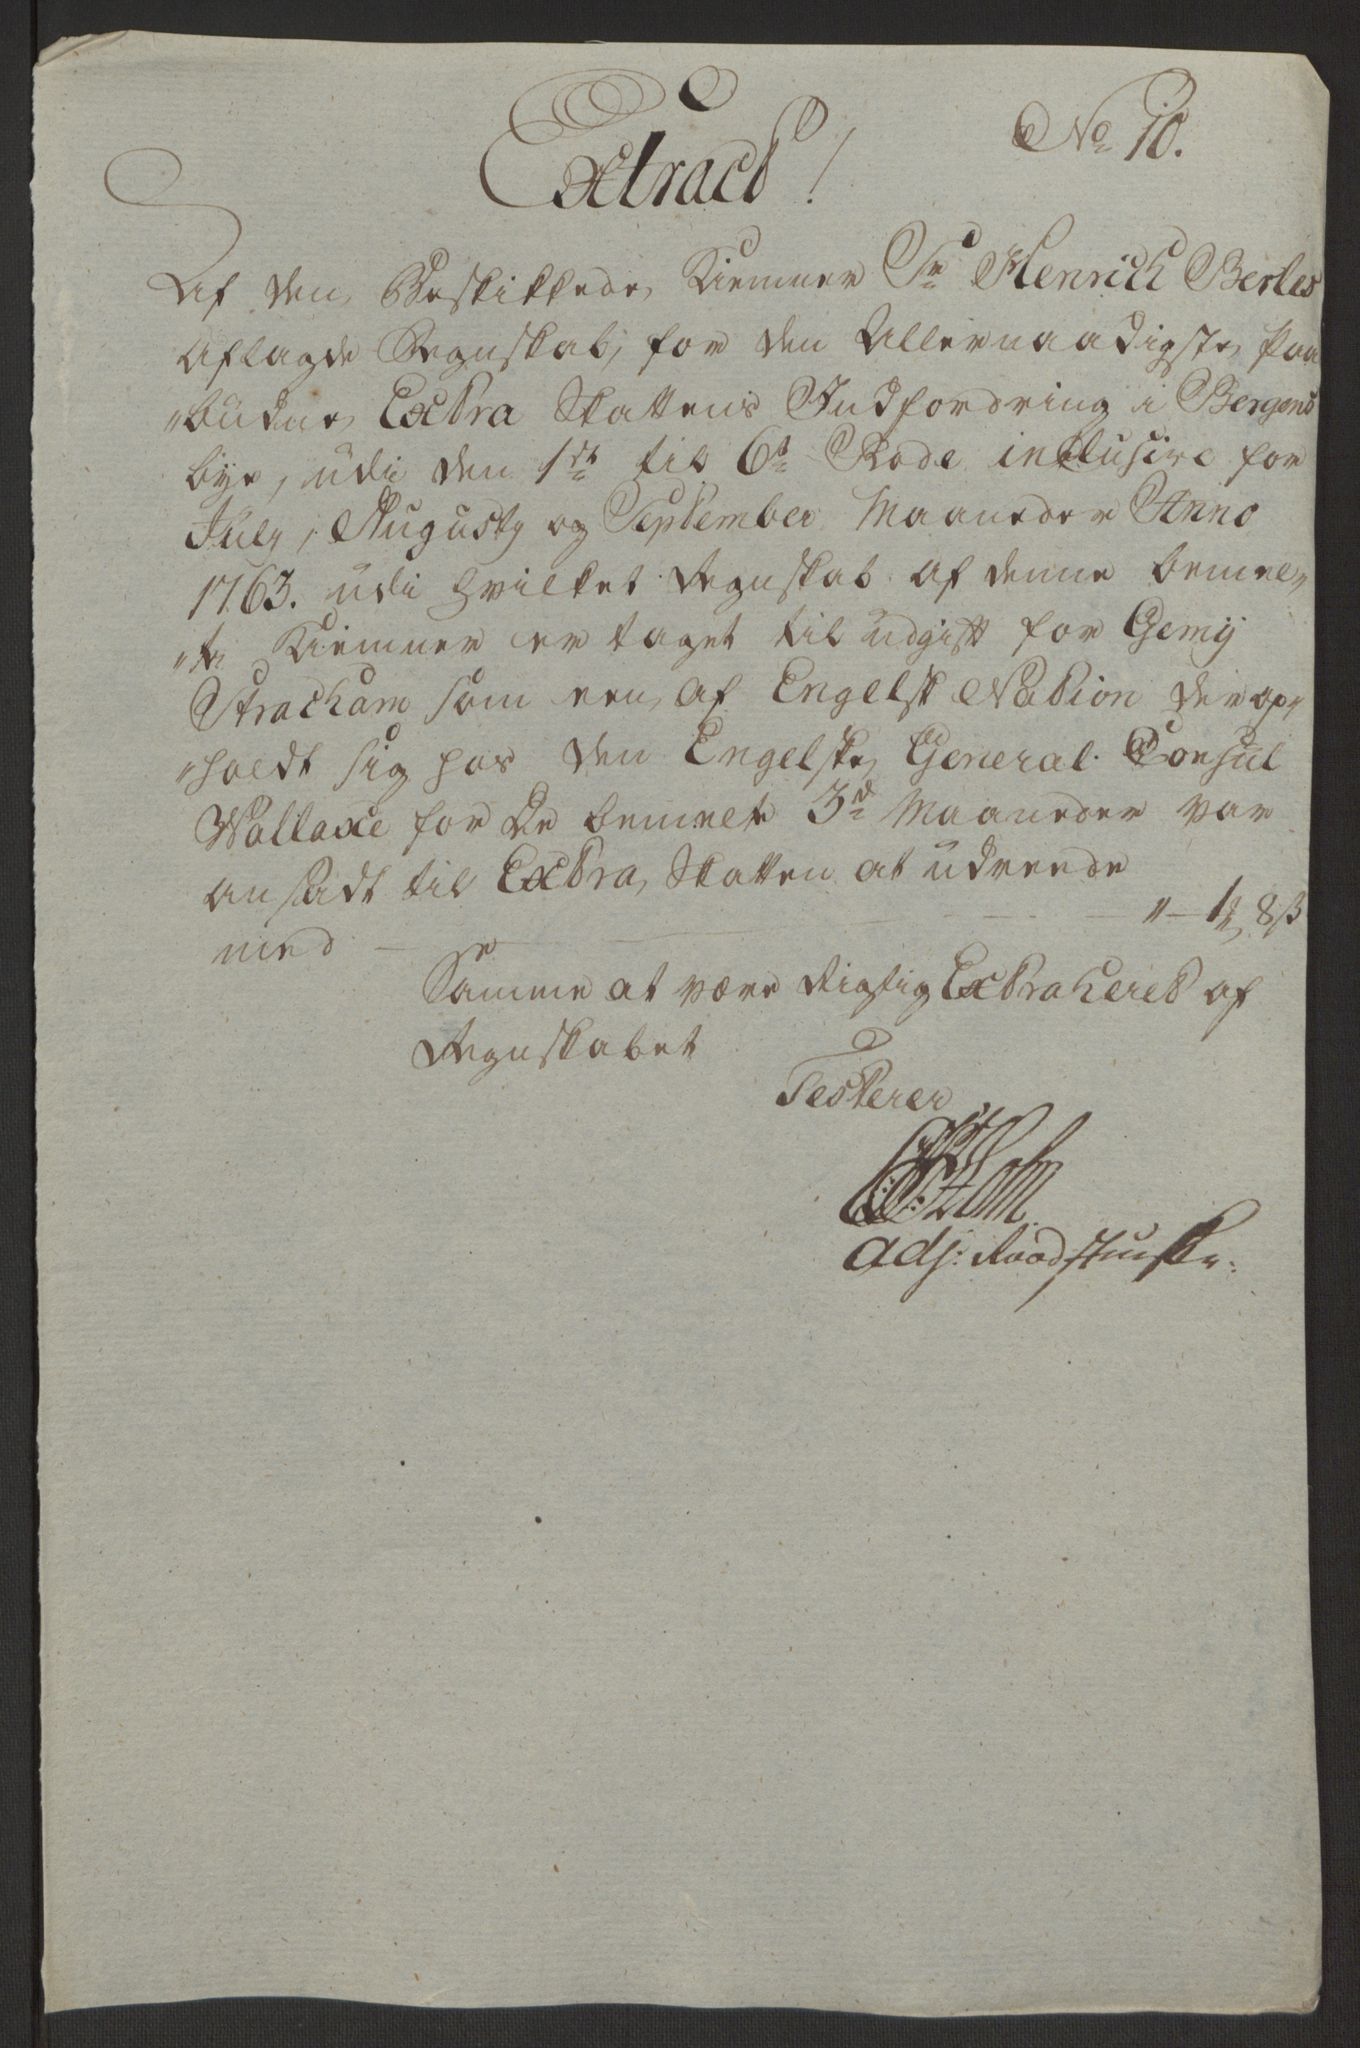 No 10.
Extract!
Af den Beskikkede Kiemner Sr Henrich Berles
aflagde Regnskab, for den Allernaadigste Paa
"budne Extra Skattens Indfordring i Bergens
bye, udi den 1ste til 6te Rode inclusive for
July, Augusty og September Maaneder Anno
1763. udi hvilket Regnskab af denne bemel"
"te Kiemner er taget til udgift for Gemij
Stracham som een af Engelsk Nation der op"
"holdt sig hos den Engelske General Consul
Wallace for De bemelte 3de Maaneder var
ansadt til Extra Skatten at udreede
med - " - 1 8 s
Samme at være Rigtig Extraheret af
Regnskabet
Testerer
Holm
adj: Raadstueskr: